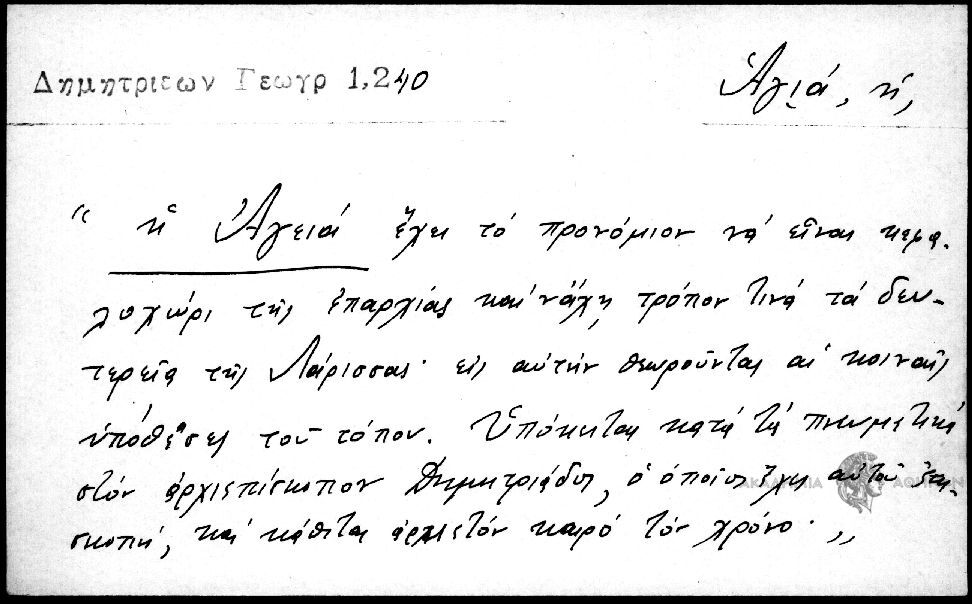 Δημητριεων Γεωγρ 1,240
Ἁγιά, ἡ,
“ ἡ Ἁγειά ἔχει τό προνόμιον νά εἶναι κεφα-
λοχώρι τῆς ἐπαρχίας καί νάχῃ τρόπον τινά τά δευ-
τερεῖα τῆς Λάρισσας· εἰς αὐτήν θεωροῦνται αἱ κοιναῖς
ὑπόθεσες τοῦ τόπου. Ὑπόκειται κατά τά πνευματικά
στόν ἀρχιεπίσκοπον Δημητριάδος, ὁ ὁποῖος ἔχει αὐτοῦ ἐπι-
σκοπή, καί κάθεται ἀρκετόν καιρό τόν χρόνο· ”
ΑΚΑΔΗΜΙΑ ΑΘΗΝΩΝ